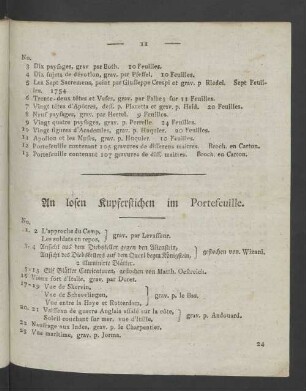 22
No.
3 Dix paysages, grav. par Both. 10 Feuilles.
4 Dix sujets de dévotion, grav. par Pfeffel. 10 Feuilles.
5 Les Sept Sacremens, peint par Giuseppe Crespi et grav. p Riedel. Sept Feuil-
len. 1754
6 Trente-deux têtes et Vases, grav. par sur 11 Feuilles.
7 Vingt têtes d'Apôtres, des. p. Piazetta et grav. p. 20 Feuilles.
8 Neuf paysages, grav. par Hertel. 9 Feuilles.
9 Vingt quatre paysages, grav. p. Perrelle 24 Feuilles.
10 Vingt figures d'Academies, grav. p. Huquier. 20 Feuilles.
11 Apollon et les Muses, grav. p. Huquier. 10 Feuilles.
12 Portefeuille contenant 105 gravures de differens maitres. Broch. en Carton.
13 Portefeuille contenant 107 gravures de diff. maitres. Broch. en Carton.
An losen Kupferstichen im Portefeuille.
No.
1. 2 L'approche du Camp,
Les soldats en repos, grav. par Levasseur.
3. 4 Ansicht auf den gegen den
Ansicht des auf den bey Königstein, gestochen von Wizani.
2 illuminirte Blätter.
5-15 Elf Blätter Carricaturen, gestochen von Matth. Oesterreich.
16 Vieux fort d'Italie, grav. par Duret.
17-19 Vue de
Vue de Schevelingen,
Vue entre la Haye et Rotterdam, grav. p. le Bas.
20. 21 Vaisseau de guerre Anglais sur la côte,
Soleil couchant sur mer, vue d'Italie, grav. p.
22 Naufrage aux Indes, grav. p. le Charpentier.
23 Vue maritime, grav. p.
24